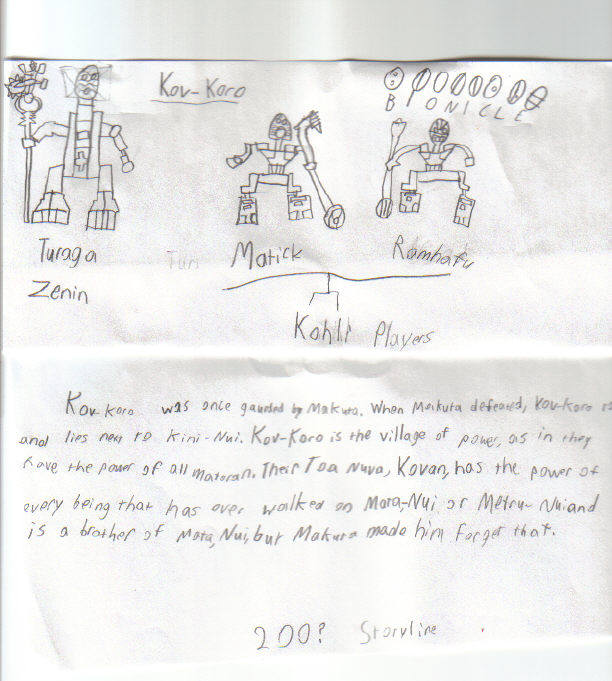 Kov-Koro
BIONICLE
Turaga
Zenin
Matick
Ramhafu
Kohlii Players
Kov-Koro was once gaurded by Makuta. When Makuta defeated, Kov-Koro
and lies next to Kini-Nui. Kov-Koro is the village of power, as in they
have the power of all matoran. Their Toa Nuva, Kovan, has the power of
every being that has ever walked on Mata-Nui or Metru-Nui and
is a brother of Mata Nui, but Makuta made him forget that.
200? Storyline